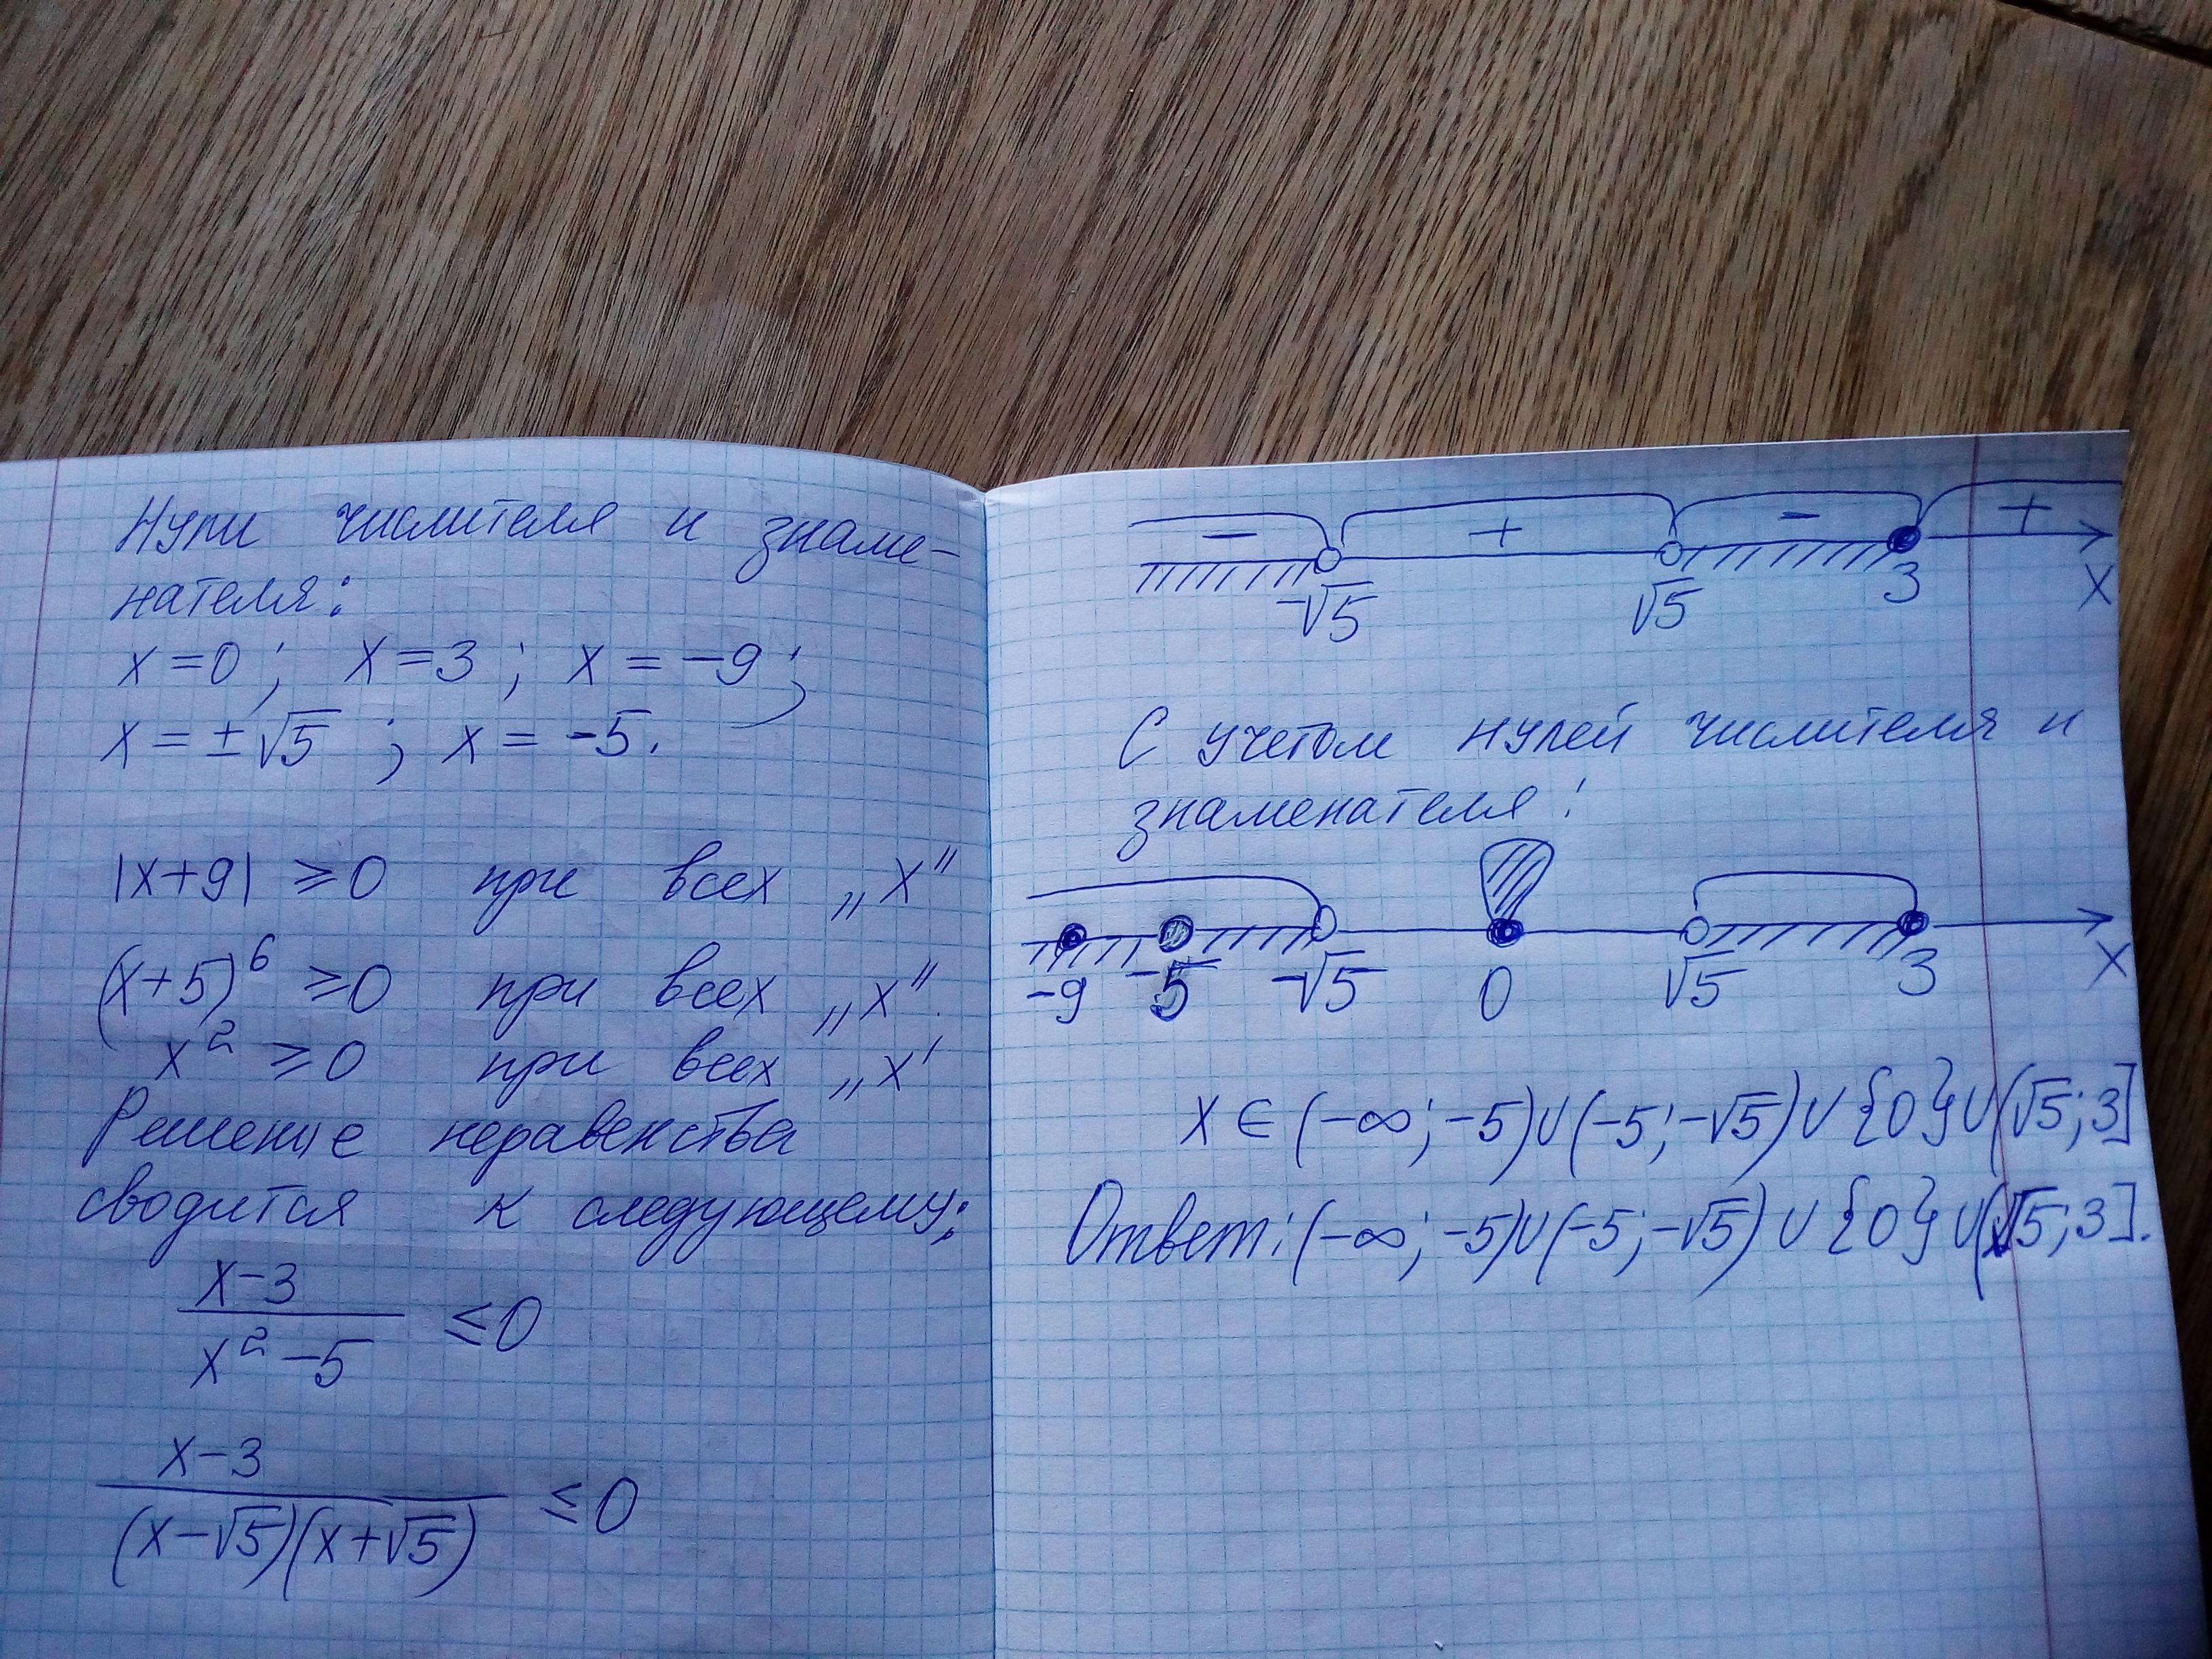 Нули числителя и знаме-
нателя:
x=0; x=3; x=-9;
x=±√5; x=-5.
|x+9| ⩾0 при всех „x"
(x+5)⁶ ⩾0 при всех „x".
x² ⩾0 при всех „x'
Решение неравенства
сводится к следующему:
x-3
x²-5
≤0
x-3
(x-√5)(x+√5)
≤0
- + - +
-√5 √5 3 x
С учетом нулей числителя и
знаменателя:
-9 -5 -√5 0 √5 3 x
x∈(-∞;-5)∪(-5;-√5)∪{0}∪(√5;3]
Ответ: (-∞;-5)∪(-5;-√5)∪{0}∪(√5;3].